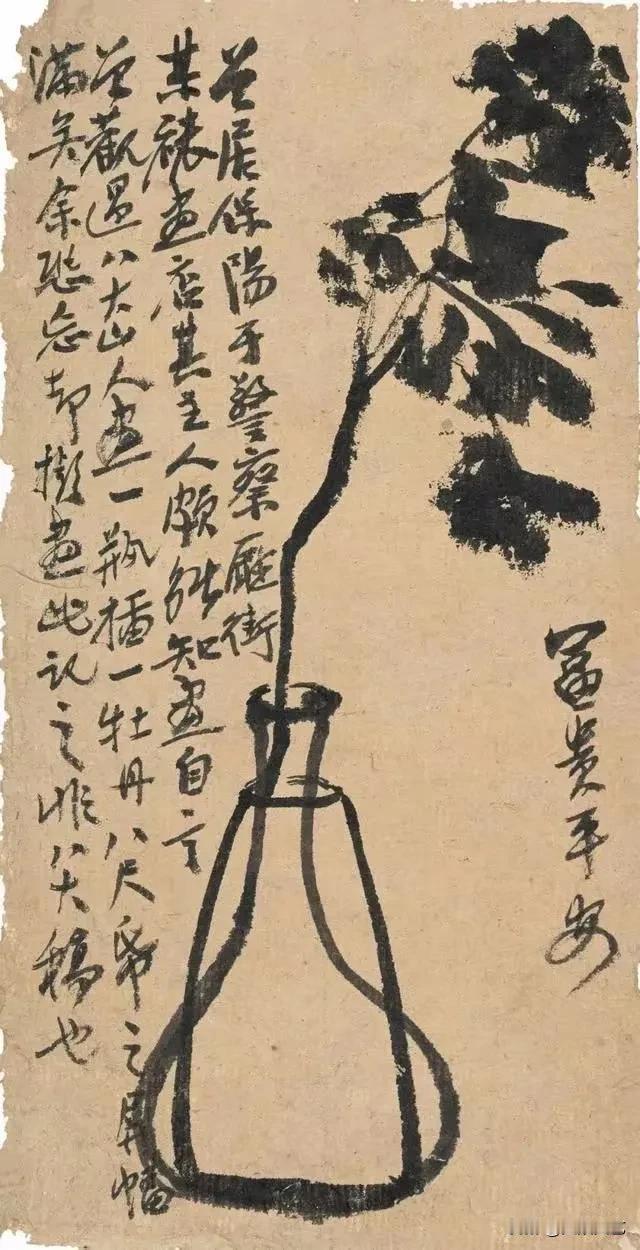 富貴平安
曾居保陽于警察廳街
某裱畫店其主人頗能知畫自言
曾觀過八大山人畫一瓶插一牡丹八尺帋之屏幅
滿矣余恐忘却擬畫此記之非八大稿也